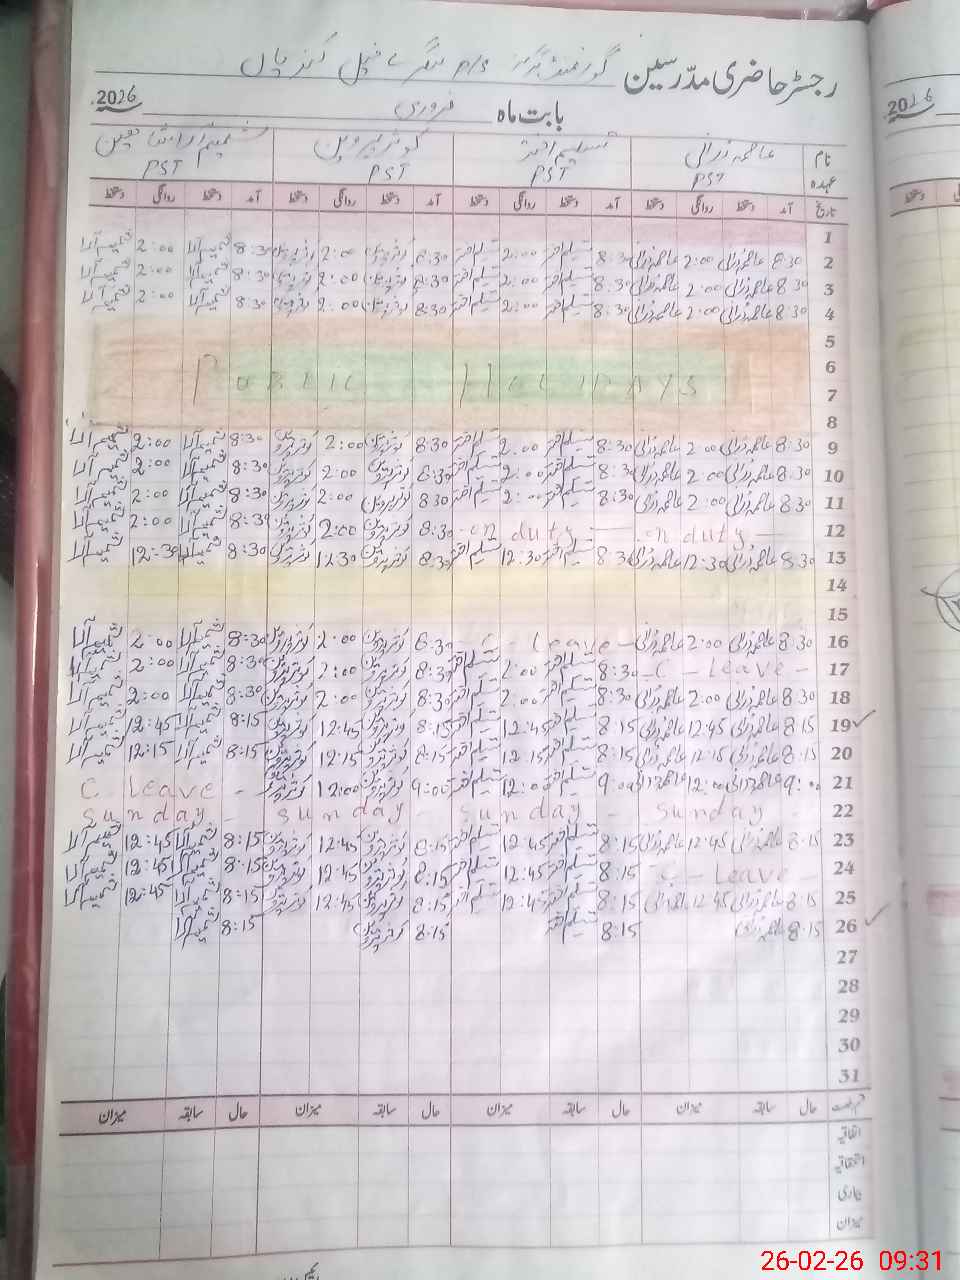 رجسٹر حاضری مدرسین گورنمنٹ گرلز P/S
بابت ماہ فروری 2026ء
نام عاصمہ درانی تسلیم اختر کوثر پروین شمیم آرا
عہدہ PST PST PST PST
تاریخ آمد دستخط روانگی دستخط آمد دستخط روانگی دستخط آمد دستخط روانگی دستخط آمد دستخط روانگی دستخط
1
2 8:30 عاصمہ درانی 2:00 عاصمہ درانی 8:30 تسلیم اختر 2:00 تسلیم اختر 8:30 کوثر پروین 2:00 کوثر پروین 8:30 شمیم آرا 2:00 شمیم آرا
3 8:30 عاصمہ درانی 2:00 عاصمہ درانی 8:30 تسلیم اختر 2:00 تسلیم اختر 8:30 کوثر پروین 2:00 کوثر پروین 8:30 شمیم آرا 2:00 شمیم آرا
4 8:30 عاصمہ درانی 2:00 عاصمہ درانی 8:30 تسلیم اختر 2:00 تسلیم اختر 8:30 کوثر پروین 2:00 کوثر پروین 8:30 شمیم آرا 2:00 شمیم آرا
5
6
PUBLIC HOLIDAYS
7
8
9 8:30 عاصمہ درانی 2:00 عاصمہ درانی 8:30 تسلیم اختر 2:00 تسلیم اختر 8:30 کوثر پروین 2:00 کوثر پروین 8:30 شمیم آرا 2:00 شمیم آرا
10 8:30 عاصمہ درانی 2:00 عاصمہ درانی 8:30 تسلیم اختر 2:00 تسلیم اختر 8:30 کوثر پروین 2:00 کوثر پروین 8:30 شمیم آرا 2:00 شمیم آرا
11 8:30 عاصمہ درانی 2:00 عاصمہ درانی 8:30 تسلیم اختر 2:00 تسلیم اختر 8:30 کوثر پروین 2:00 کوثر پروین 8:30 شمیم آرا 2:00 شمیم آرا
12 on duty - on duty - 8:30 کوثر پروین 2:00 کوثر پروین 8:30 شمیم آرا 2:00 شمیم آرا
13 8:30 عاصمہ درانی 12:30 عاصمہ درانی 8:30 تسلیم اختر 12:30 تسلیم اختر 8:30 کوثر پروین 12:30 کوثر پروین 8:30 شمیم آرا 12:30 شمیم آرا
14
15
16 8:30 عاصمہ درانی 2:00 عاصمہ درانی C - Leave - 8:30 کوثر پروین 2:00 کوثر پروین 8:30 شمیم آرا 2:00 شمیم آرا
17 C - Leave - 8:30 تسلیم اختر 2:00 تسلیم اختر 8:30 کوثر پروین 2:00 کوثر پروین 8:30 شمیم آرا 2:00 شمیم آرا
18 8:30 عاصمہ درانی 2:00 عاصمہ درانی 8:30 تسلیم اختر 2:00 تسلیم اختر 8:30 کوثر پروین 2:00 کوثر پروین 8:30 شمیم آرا 2:00 شمیم آرا
19 8:15 عاصمہ درانی 12:45 عاصمہ درانی 8:15 تسلیم اختر 12:45 تسلیم اختر 8:15 کوثر پروین 12:45 کوثر پروین 8:15 شمیم آرا 12:45 شمیم آرا
20 8:15 عاصمہ درانی 12:15 عاصمہ درانی 8:15 تسلیم اختر 12:15 تسلیم اختر 8:15 کوثر پروین 12:15 کوثر پروین 8:15 شمیم آرا 12:15 شمیم آرا
21 9:00 عاصمہ درانی 12:00 عاصمہ درانی 9:00 تسلیم اختر 12:00 تسلیم اختر 9:00 کوثر پروین 12:00 کوثر پروین C Leave -
22 Sunday - Sunday - Sunday - Sunday -
23 8:15 عاصمہ درانی 12:45 عاصمہ درانی 8:15 تسلیم اختر 12:45 تسلیم اختر 8:15 کوثر پروین 12:45 کوثر پروین 8:15 شمیم آرا 12:45 شمیم آرا
24 C - Leave - 8:15 تسلیم اختر 12:45 تسلیم اختر 8:15 کوثر پروین 12:45 کوثر پروین 8:15 شمیم آرا 12:45 شمیم آرا
25 8:15 عاصمہ درانی 12:45 عاصمہ درانی 8:15 تسلیم اختر 12:45 تسلیم اختر 8:15 کوثر پروین 12:45 کوثر پروین 8:15 شمیم آرا 12:45 شمیم آرا
26 8:15 عاصمہ درانی 8:15 تسلیم اختر 8:15 کوثر پروین 8:15 شمیم آرا
27
28
29
30
31
قسم رخصت حال سابقہ میزان حال سابقہ میزان حال سابقہ میزان حال سابقہ میزان
اتفاقیہ
استحقاقیہ
بیماری
میزان
2026ء
دستخط
26-02-26 09:31